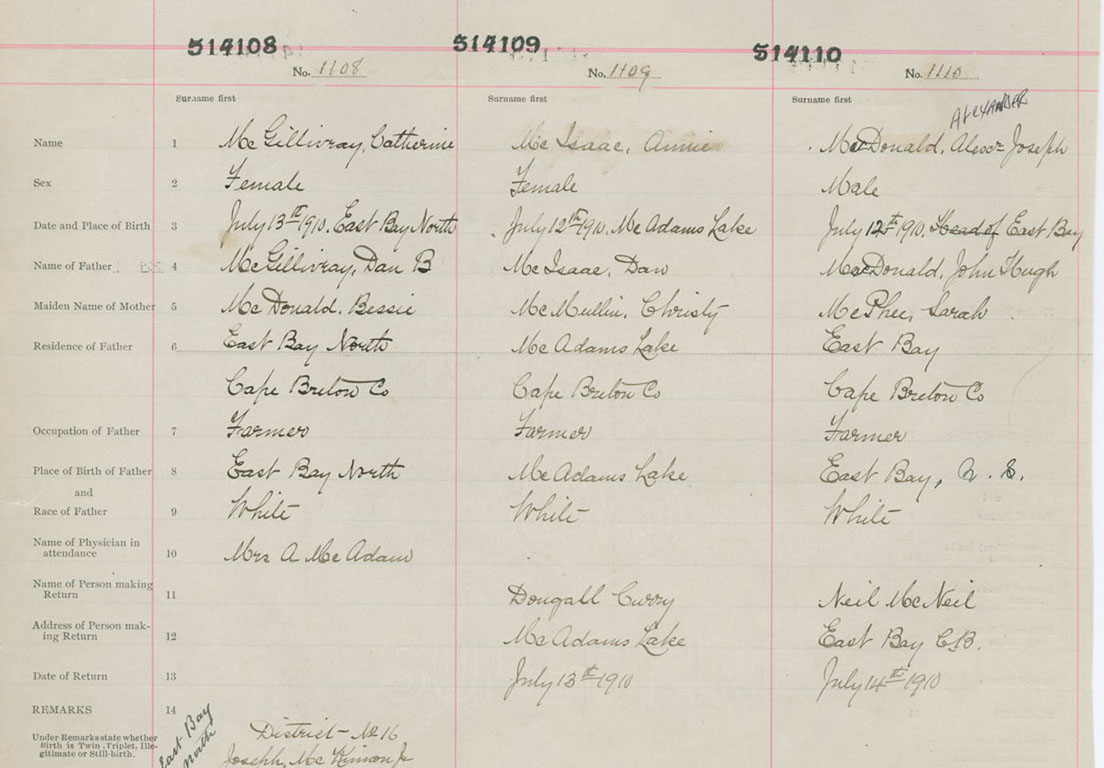 514108 514109 514110
No. 1108 No. 1109 No. 1110
Surname first Surname first Surname first
ALEXANDER
Name 1 McGillivray, Catherine McIsaac, Annie MacDonald, Alexr Joseph
Sex 2 Female Female Male
Date and Place of Birth 3 July 13th 1910. East Bay North July 12th 1910. McAdams Lake July 12th 1910. Head of East Bay
Name of Father 4 McGillivray, Dan B McIsaac, Dan MacDonald, John Hugh
Maiden Name of Mother 5 McDonald. Bessie McMullin, Christy McPhee, Sarah
Residence of Father 6 East Bay North McAdams Lake East Bay
Cape Breton Co Cape Breton Co Cape Breton Co
Occupation of Father 7 Farmer Farmer Farmer
Place of Birth of Father 8 East Bay North McAdams Lake East Bay, N. S.
and
Race of Father 9 White White White
Name of Physician in
attendance 10 Mrs A McAdam
Name of Person making
Return 11 Dougall Curry Neil McNeil
Address of Person mak-
ing Return 12 McAdams Lake East Bay C.B.
Date of Return 13 July 13th 1910 July 14th 1910
REMARKS 14
East Bay
North
Under Remarks state whether
Birth is Twin, Triplet, Ille-
gitimate or Still-birth.
District - No 16
Joseph, McKinnon Jr